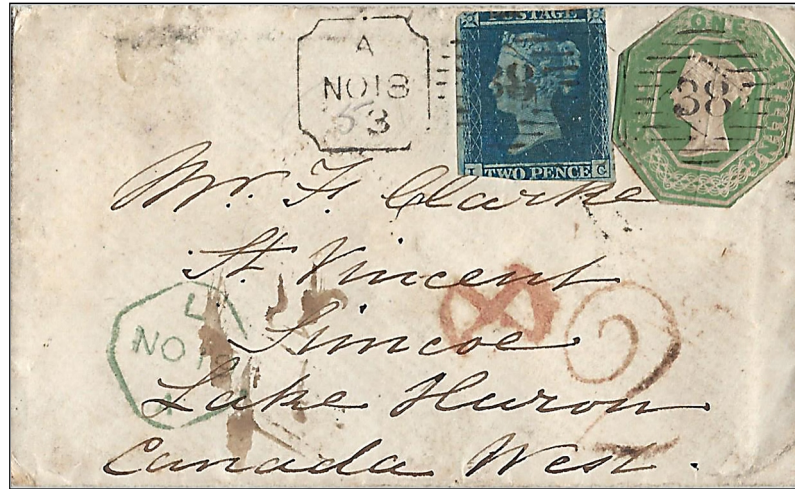 A
NO 18
53
POSTAGE
38
I TWO PENCE C
ONE SHILLING
38
Mr. F. Clarke
St. Vincent
Simcoe
Lake Huron
Canada West.
L
NO 18
2